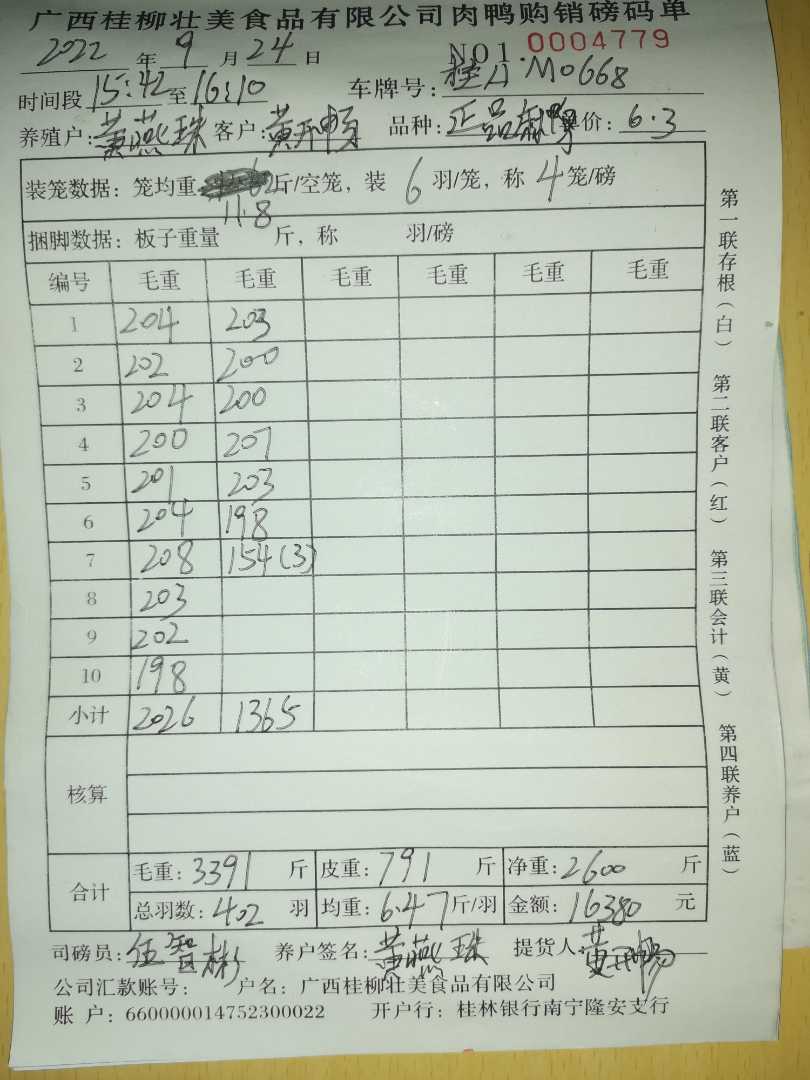 广西桂柳壮美食品有限公司肉鸭购销磅码单
2022 年 9 月 24 日 NO1. 0004779
时间段 15:42 至 16:10 车牌号: 桂A M0668
养殖户: 黄燕珠 客户: 黄开畅 品种: 正品 单价: 6.3
装笼数据: 笼均重 11.8 斤/空笼, 装 6 羽/笼, 称 4 笼/磅
捆脚数据: 板子重量 斤, 称 羽/磅
编号 毛重 毛重 毛重 毛重 毛重 毛重
1 204 203
2 202 200
3 204 200
4 200 207
5 201 203
6 204 198
7 208 154(3)
8 203
9 202
10 198
小计 2026 1365
核算
合计 毛重: 3391 斤 皮重: 791 斤 净重: 2600 斤
总羽数: 402 羽 均重: 6.47 斤/羽 金额: 16380 元
司磅员: 伍智彬 养户签名: 黄燕珠 提货人: 黄开畅
公司汇款账号: 户名: 广西桂柳壮美食品有限公司
账 户: 660000014752300022 开户行: 桂林银行南宁隆安支行
第一联存根(白) 第二联客户(红) 第三联会计(黄) 第四联养户(蓝)